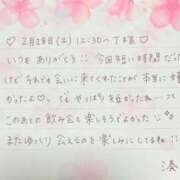 ♡ 2月28日(土) 12:30〜 T様 ♡
いつもありがとう!! 今回短い時間だった
けどそれでも会いに来てくれたことが本当に嬉し
かったよ♡。でもやっぱり短かったね
このあとの飲み会も楽しそうでよかった
またゆっくり会えるのを楽しみにしてるね!!
湊